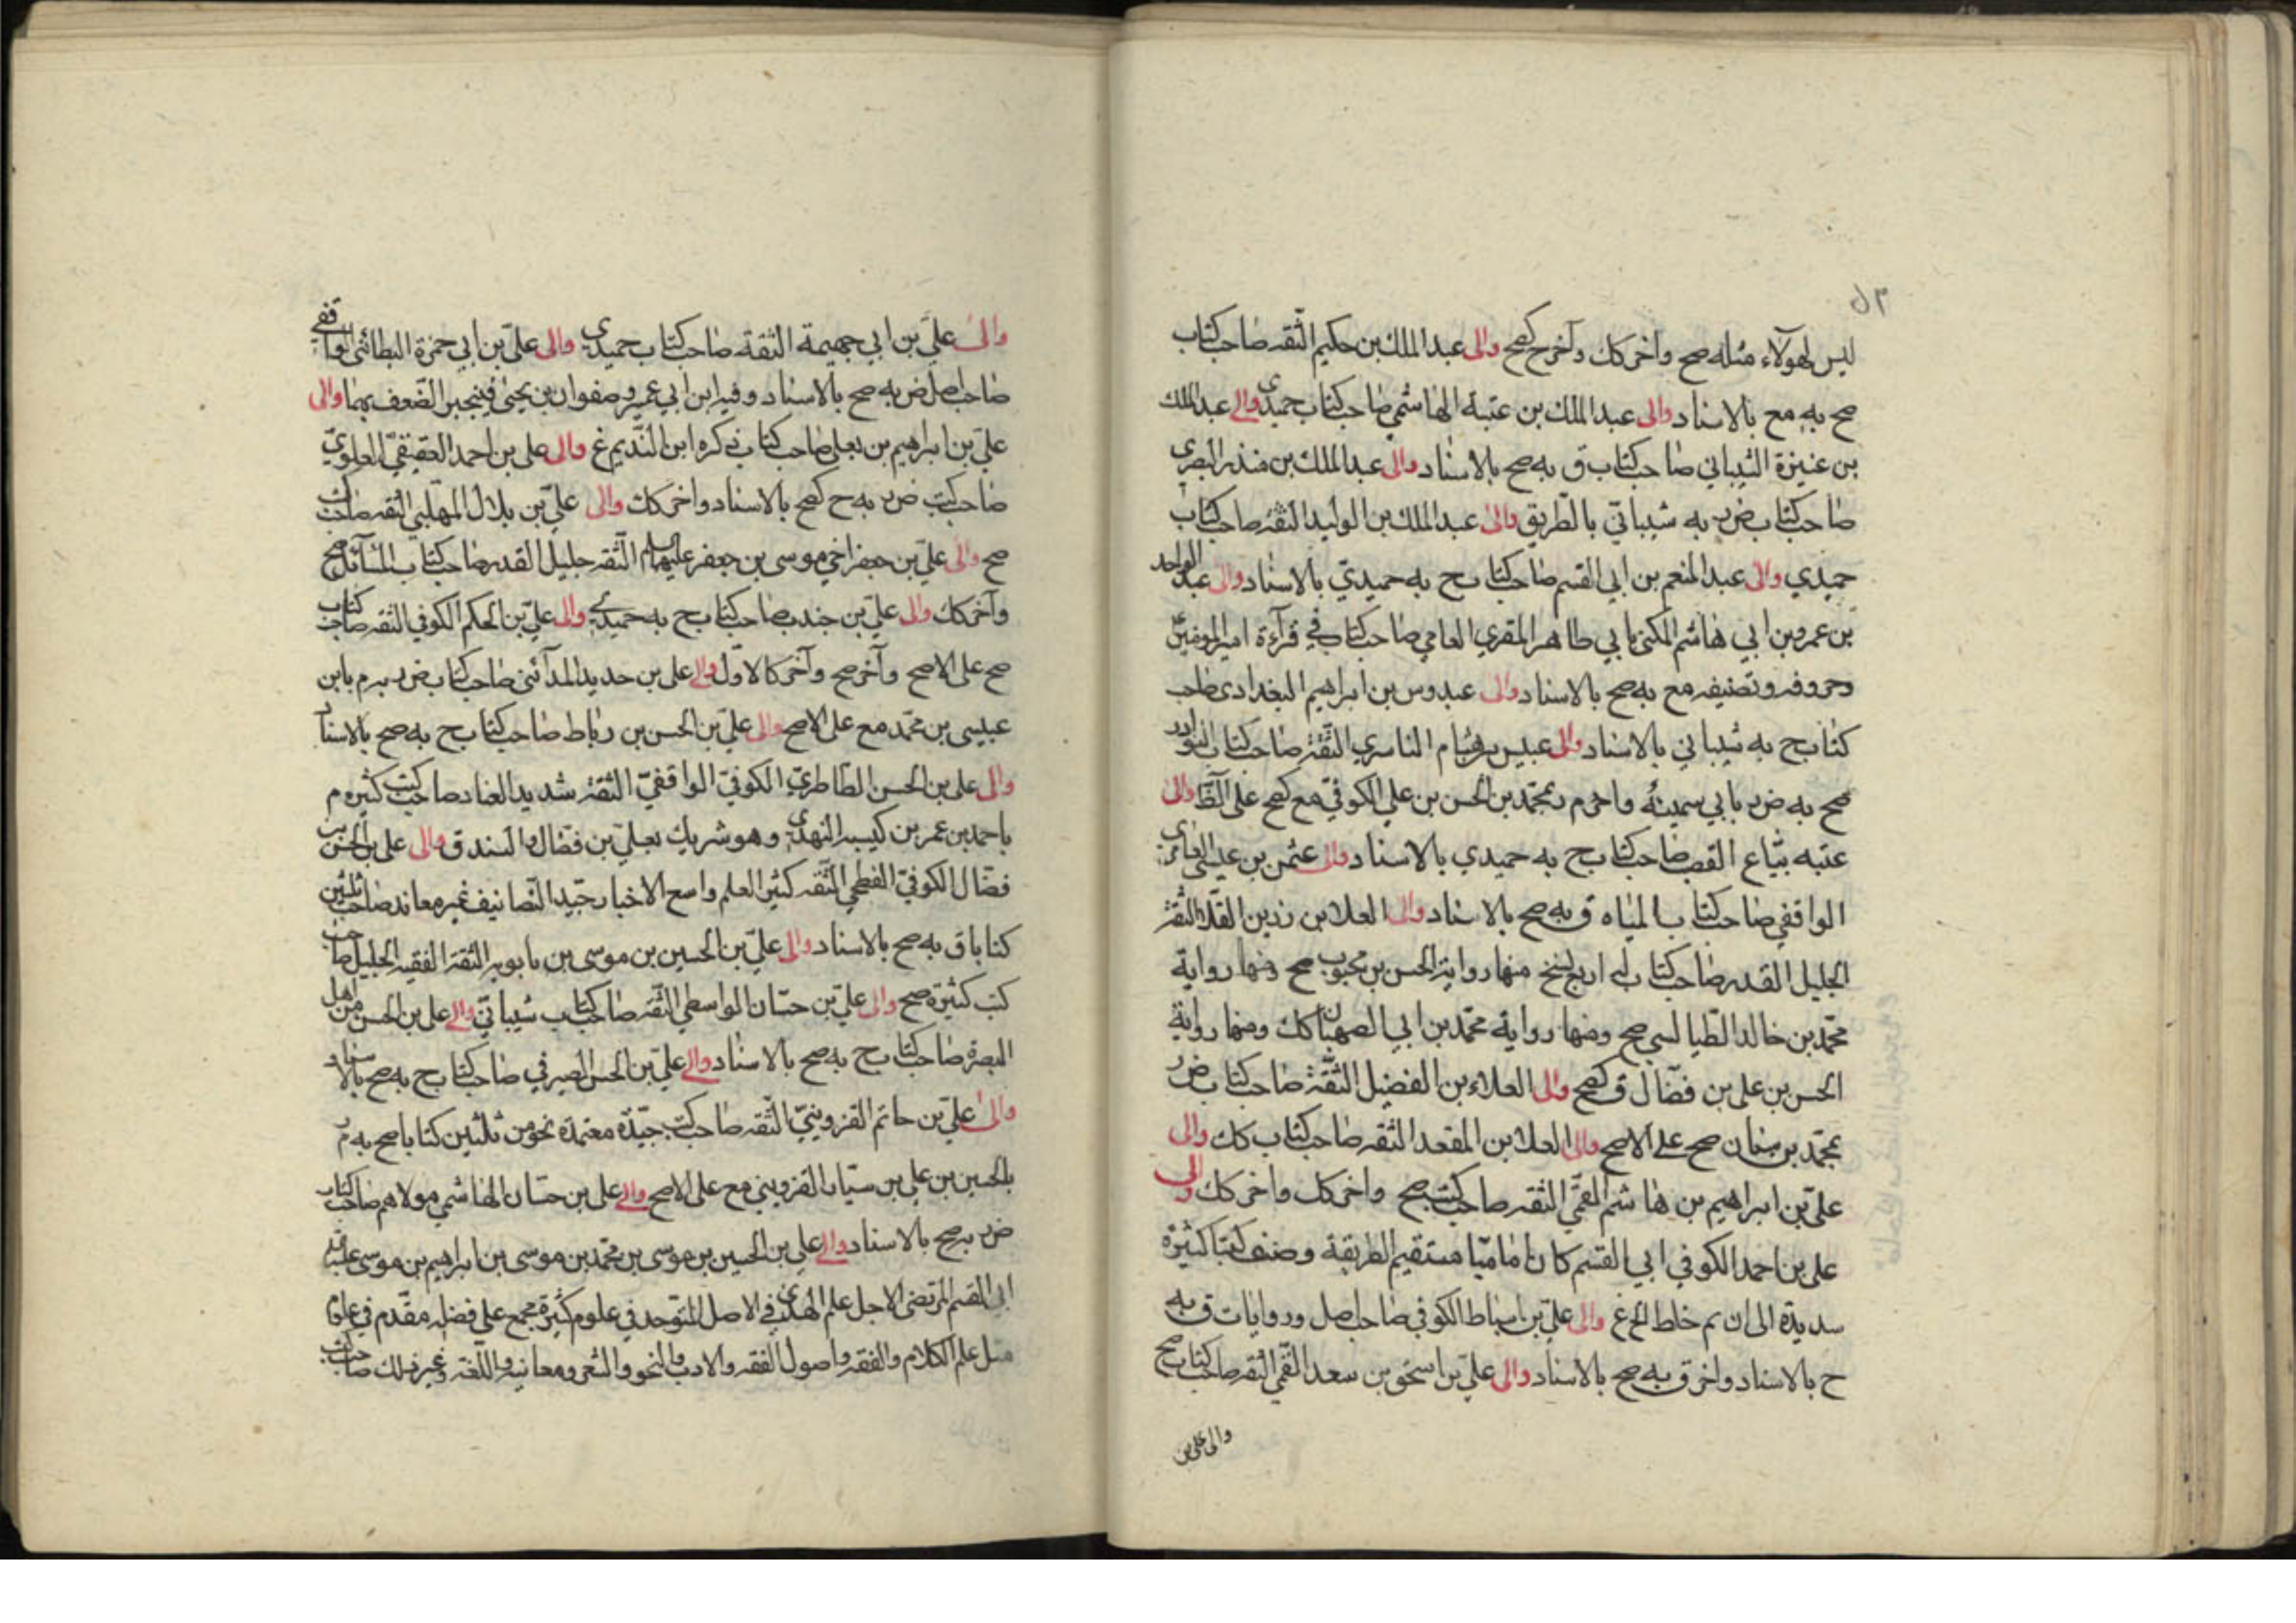 ليس لهولاء مثله صح واخر كك وآخر ح كصح والى عبد الملك بن حكيم الثقه صاحب كتاب
صح به مع بالاسناد والى عبد الملك بن عتبة الهاشمي صاحب كتاب حميدي والى عبد الملك
بن عنيزة الشيباني صاحب كتاب ق به صح بالاسناد والى عبد الملك بن منذر البصري
صاحب كتاب ض به شيباني بالطريق والى عبد الملك بن الوليد الثقة صاحب كتاب
حميدي والى عبد المنعم بن ابي القسم صاحب كتاب ح به حميدي بالاسناد والى عبد الواحد
بن عمر وبن ابي هاشم المكنى بابي طاهر المقري العامي صاحب كتاب في قرآءة امير المومنين
وحروفه وتصنيفه مع به صح بالاسناد والى عبدوس بن ابراهيم البغدادي صاحب
كتاب ح به شيباني بالاسناد والى عبيس بن هشام الناسري الثقة صاحب كتاب النوادر
صح به ض بابي سمينة واخر م بمحمد بن الحسن بن علي الكوفي مع كصح على الظ والى
عتبه بيّاع القصب صاحب كتاب ح به حميدي بالاسناد والى عثمن بن عيسى العامري
الواقفي صاحب كتاب المياه ق به صح بالاسناد والى العلا بن رزين القلّا الثقة
الجليل القدر صاحب كتاب له اربع نسخ منها رواية الحسن بن محبوب صح ومنها رواية
محمد بن خالد الطيالسي صح ومنها رواية محمد بن ابي الصهبان كك ومنها رواية
الحسن بن علي بن فضّال ق كصح والى العلاء بن الفضيل الثقة صاحب كتاب ض
بمحمد بن سنان صح على الاصح والى العلا بن المقعد الثقه صاحب كتاب كك والى
علي بن ابراهيم بن هاشم القمّي الثقه صاحب كتب صح واخر كك واخر كك والى
علي بن احمد الكوفي ابي القسم كان اماميّا مستقيم الطريقة وصنف كتبا كثيرة
سديدة الى ان تم خلط الخ غ والى علي بن اسباط الكوفي صاحب اصل وروايات ق به
ح بالاسناد واخر ق به صح بالاسناد والى علي بن اسحق بن سعد القمّي الثقه صاحب كتاب صح
والى علي بن
والى علي بن ابي جهيمة الثقة صاحب كتاب حميدي والى علي بن ابي حمزة البطائني الواقفي
صاحب اصل ض به صح بالاسناد وفيه ابن ابي عمير وصفوان بن يحيى فينجبر الضعف بهما والى
علي بن ابراهيم بن يعلى صاحب كتاب ذكره ابن النديم غ والى علي بن احمد العقيقي العلوي
صاحب كتب ض به ح كصح بالاسناد واخر كك والى علي بن بلال المهلبي الثقه صاحب كتب
صح والى علي بن جعفر اخي موسى بن جعفر عليهما السلم الثقه جليل القدر صاحب كتاب المسآئل صح
وآخر كك والى علي بن جندب صاحب كتاب ح به حميدي والى علي بن الحكم الكوفي الثقه صاحب كتاب
صح على الاصح وآخر صح وآخر كالاول والى علي بن حديد المدآئني صاحب كتاب ض به م بابن
عيسى بن محمد مع على الاصح والى علي بن الحسن بن رباط صاحب كتاب ح به صح بالاسناد
والى علي بن الحسن الطاطري الكوفي الواقفيّ الثقة شديد العناد صاحب كتب كثيره م
باحمد بن عمر بن كيسبه النهدي وهو شريك بعلي بن فضال والسند ق والى علي بن الحسن بن
فضّال الكوفيّ الفطحي الثقه كثير العلم واسع الاخبار جيّد التصانيف غير معاند صاحب ثلثين
كتابا ق به صح بالاسناد والى علي بن الحسين بن موسى بن بابويه الثقة الفقيه الجليل صاحب
كتب كثيرة صح والى علي بن حسّان الواسطي الثقه صاحب كتاب شيباني والى علي بن الحسن من اهل
البصرة صاحب كتاب ح به صح بالاسناد والى علي بن الحسن الصيرفي صاحب كتاب ح به صح بالاسناد
والى علي بن حاتم القزوينيّ الثقه صاحب كتب جيّدة معتمدة نحو من ثلثين كتابا صح به م
بالحسين بن علي بن سيبان القزويني مع على الاصح والى علي بن حسان الهاشمي مولاهم صاحب كتاب
ض به صح بالاسناد والى علي بن الحسين بن موسى بن محمد بن موسى بن ابراهيم بن موسى
ابي القسم المرتضى الاجل علم الهدى في الاصل المتوحد في علوم كثيرة مجمع على فضله مقدّم في علوم
مثل علم الكلام والفقه واصول الفقه والادب والنحو والشعر ومعانيه واللغة وغير ذلك صاحب كتب